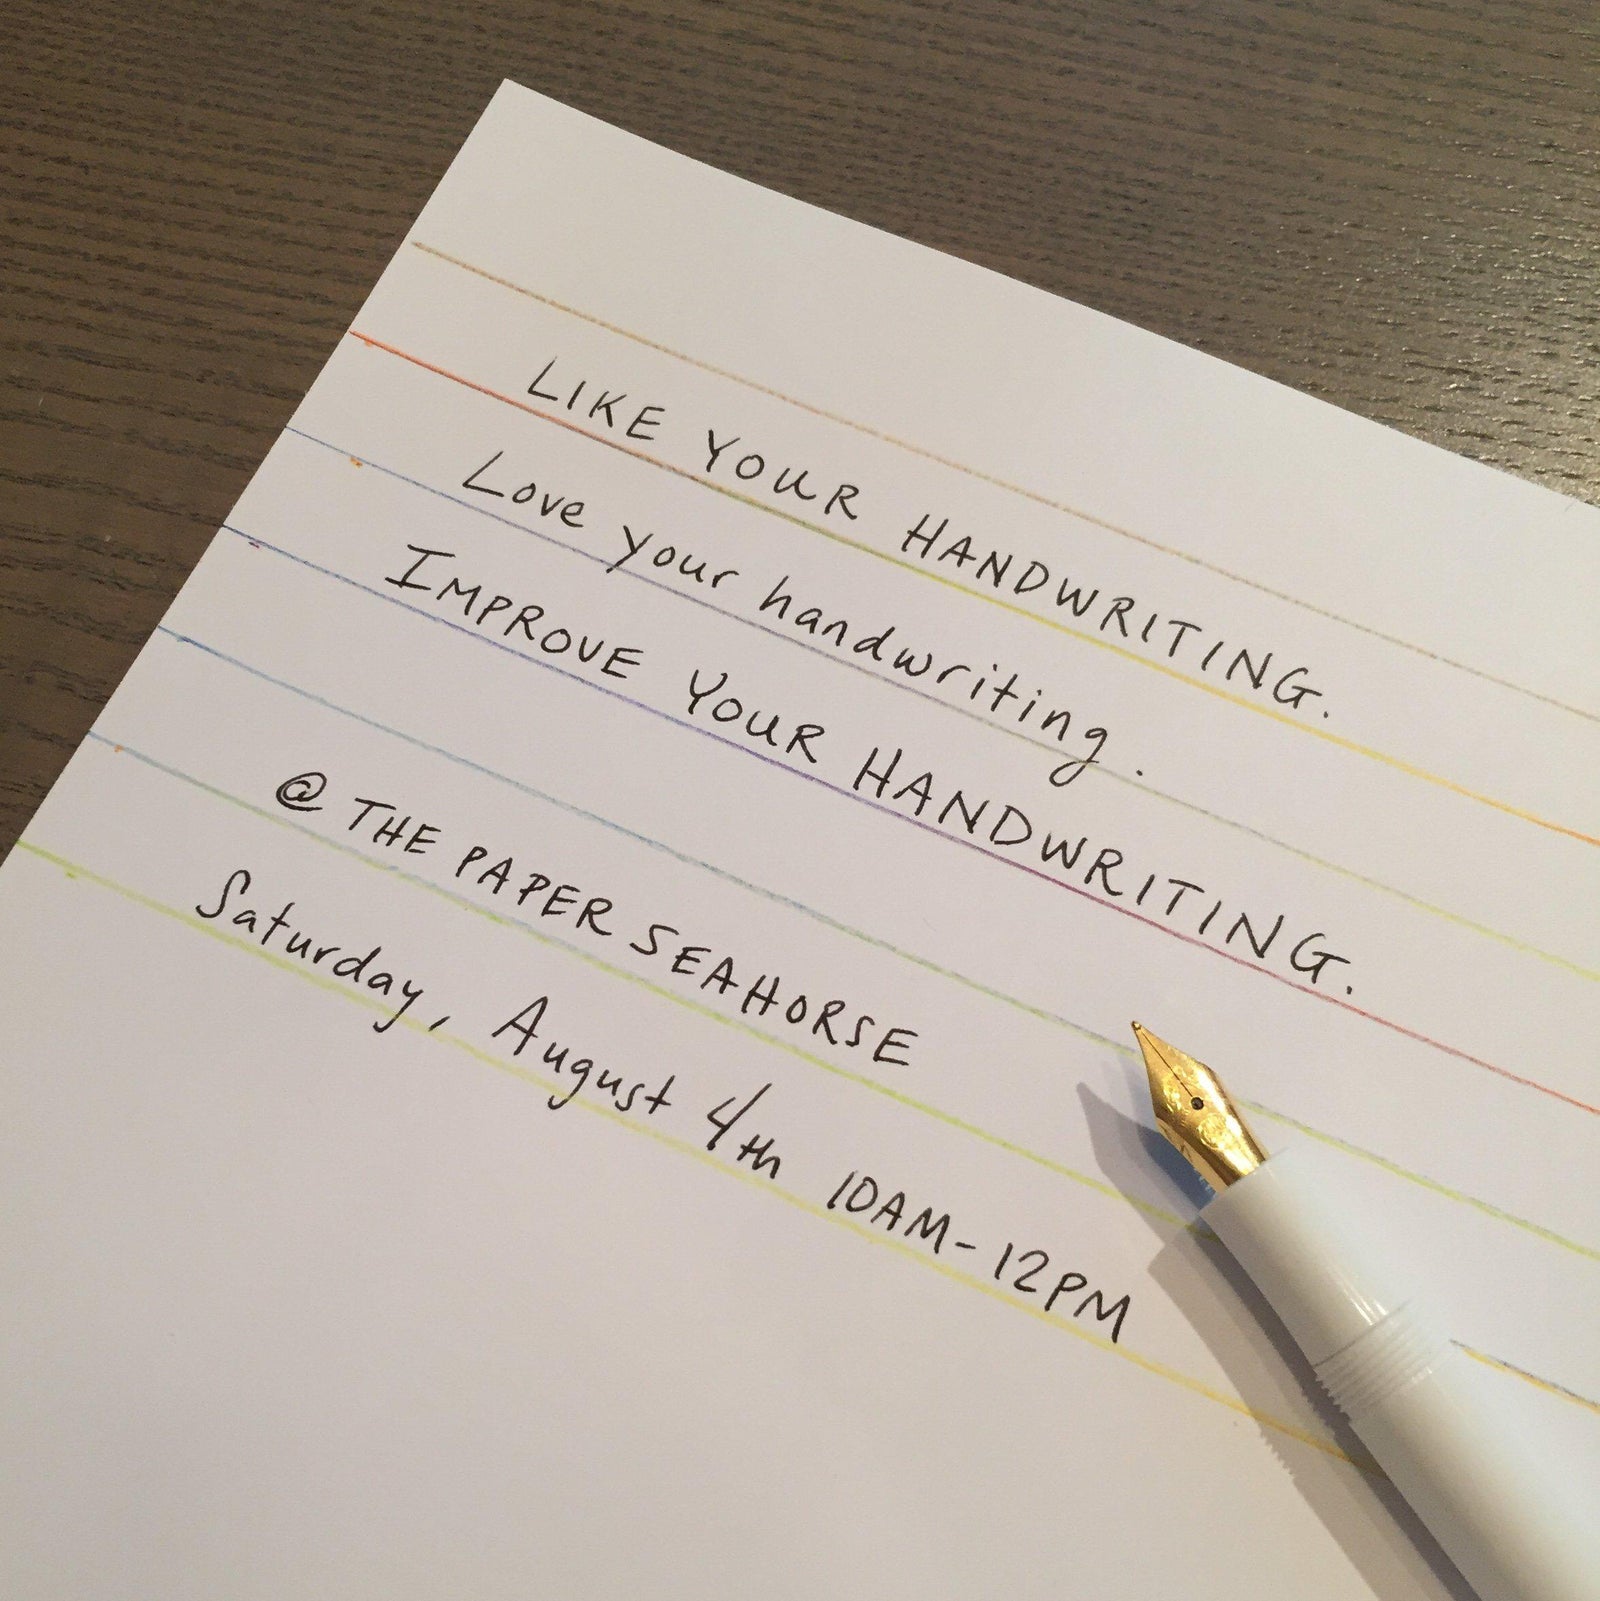 LIKE YOUR HANDWRITING.
Love your handwriting.
IMPROVE YOUR HANDWRITING.
@ THE PAPER SEAHORSE
Saturday, August 4th 10AM-12PM